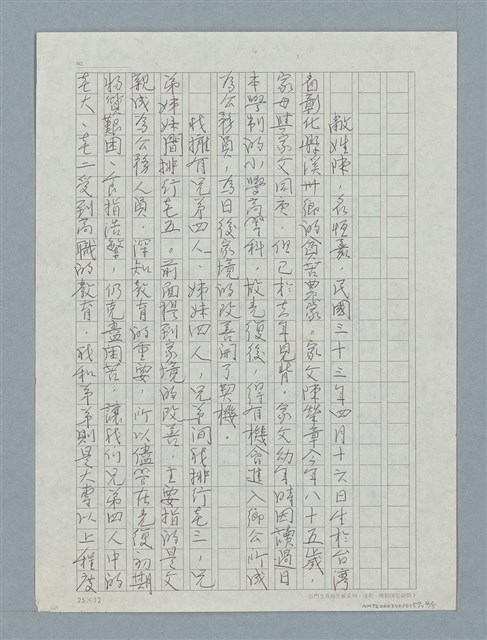 敝姓陳,名恒嘉,民國三十三年四月十六日生於台灣
省彰化縣溪州鄉的貧苦農家。家父陳鎣章今年八十五歲,
家母與家父同庚,但已於去年見背。家父幼年時因讀過日
本學制的小學高等科,故光復後,得有機會進入鄉公所成
為公務員,為日後家境的改善開了契機。
我擁有兄弟四人、姊妹四人,兄弟間我排行老三,兄
弟姊妹曆排行老五。前面提到家境的改善,主要指的是父
親成為公務人員,深知教育的重要,所以儘管在光復初期
物質艱困、食指浩繁,仍克盡困苦,讓我們兄弟四人中的
老大、老二受到高職的教育,我和弟弟則是大專以上程度
25×12